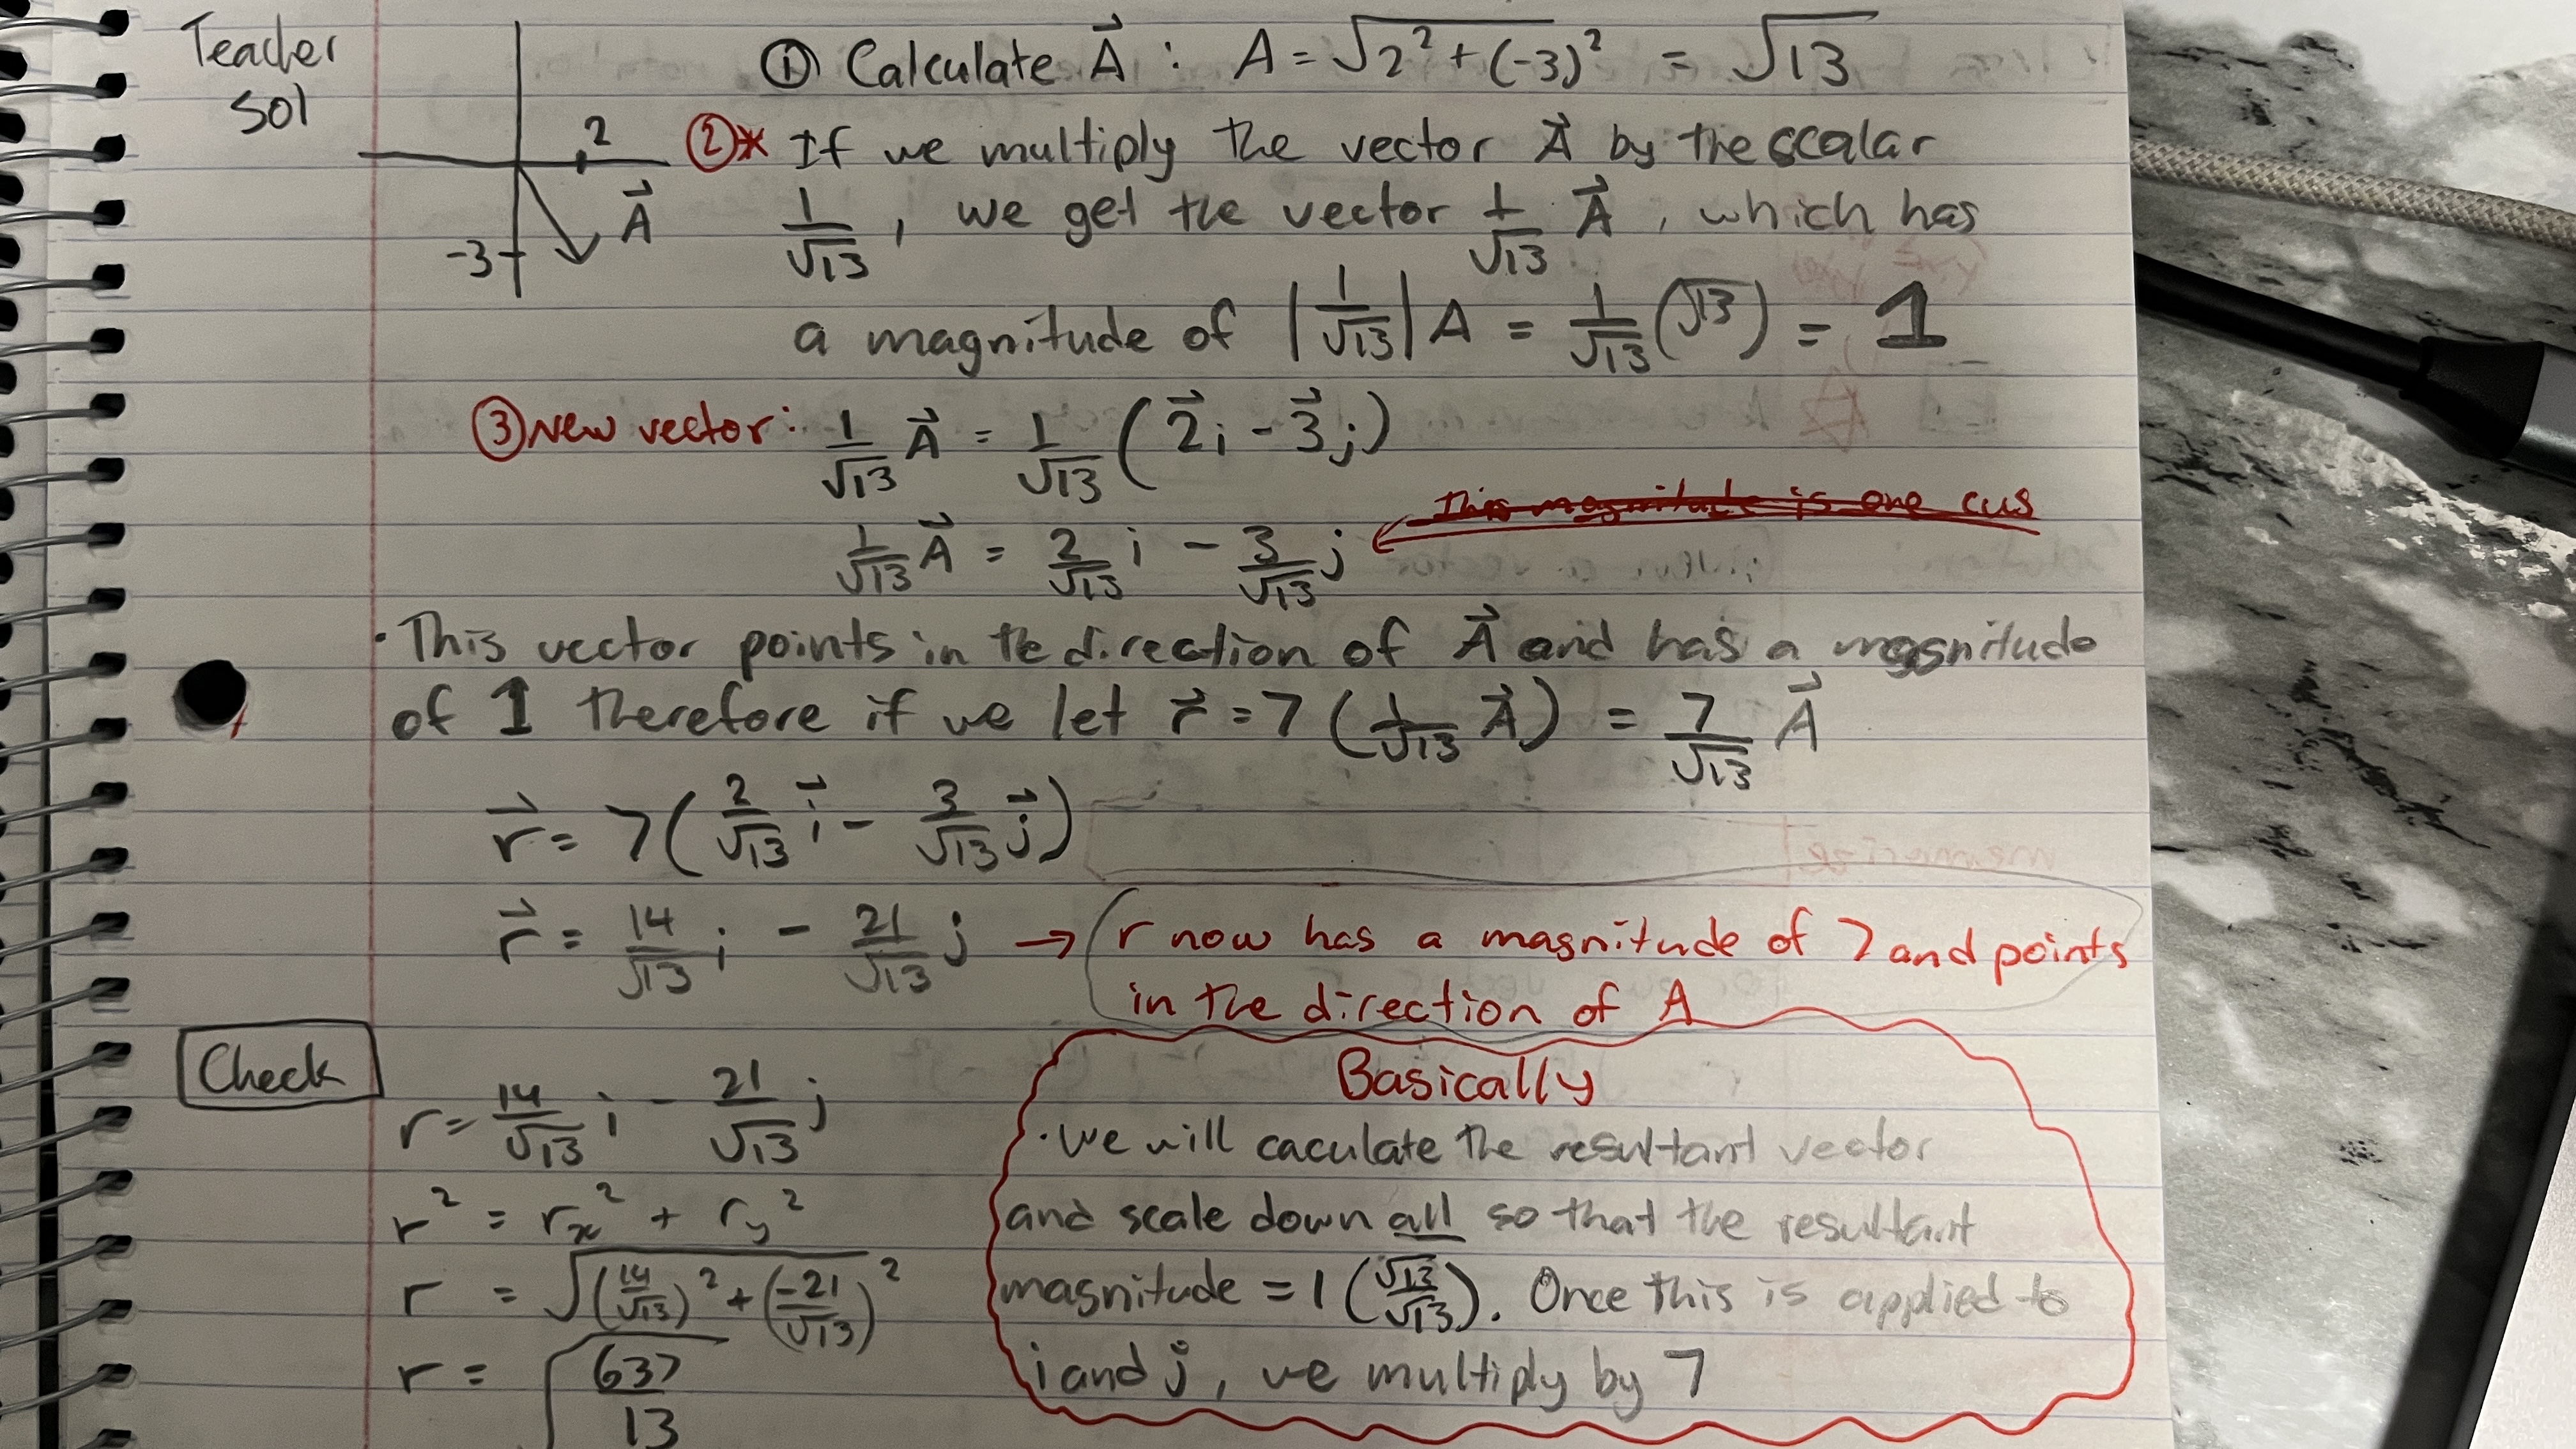 Teacher
Sol
2
A⃗
-3
① Calculate A⃗ : A = √(2² + (-3)²) = √13
②* If we multiply the vector A⃗ by the scalar
1/√13 , we get the vector 1/√13 A⃗ , which has
a magnitude of |1/√13| A = 1/√13 (√13) = 1
③ New vector: 1/√13 A⃗ = 1/√13 (2⃗i - 3⃗j)
This magnitude is one cus
1/√13 A⃗ = 2/√13 i - 3/√13 j
• This vector points in the direction of A⃗ and has a magnitude
of 1 therefore if we let r⃗ = 7 (1/√13 A⃗) = 7/√13 A⃗
r⃗ = 7(2/√13 i⃗ - 3/√13 j⃗)
r⃗ = 14/√13 i - 21/√13 j → r now has a magnitude of 7 and points
in the direction of A
Check
r = 14/√13 i - 21/√13 j
r² = rₓ² + r_y²
r = √((14/√13)² + (-21/√13)²)
r = √(637/13)
Basically
• We will caculate the resultant vector
and scale down all so that the resultant
magnitude = 1 (√13/√13). Once this is applied to
i and j, we multiply by 7